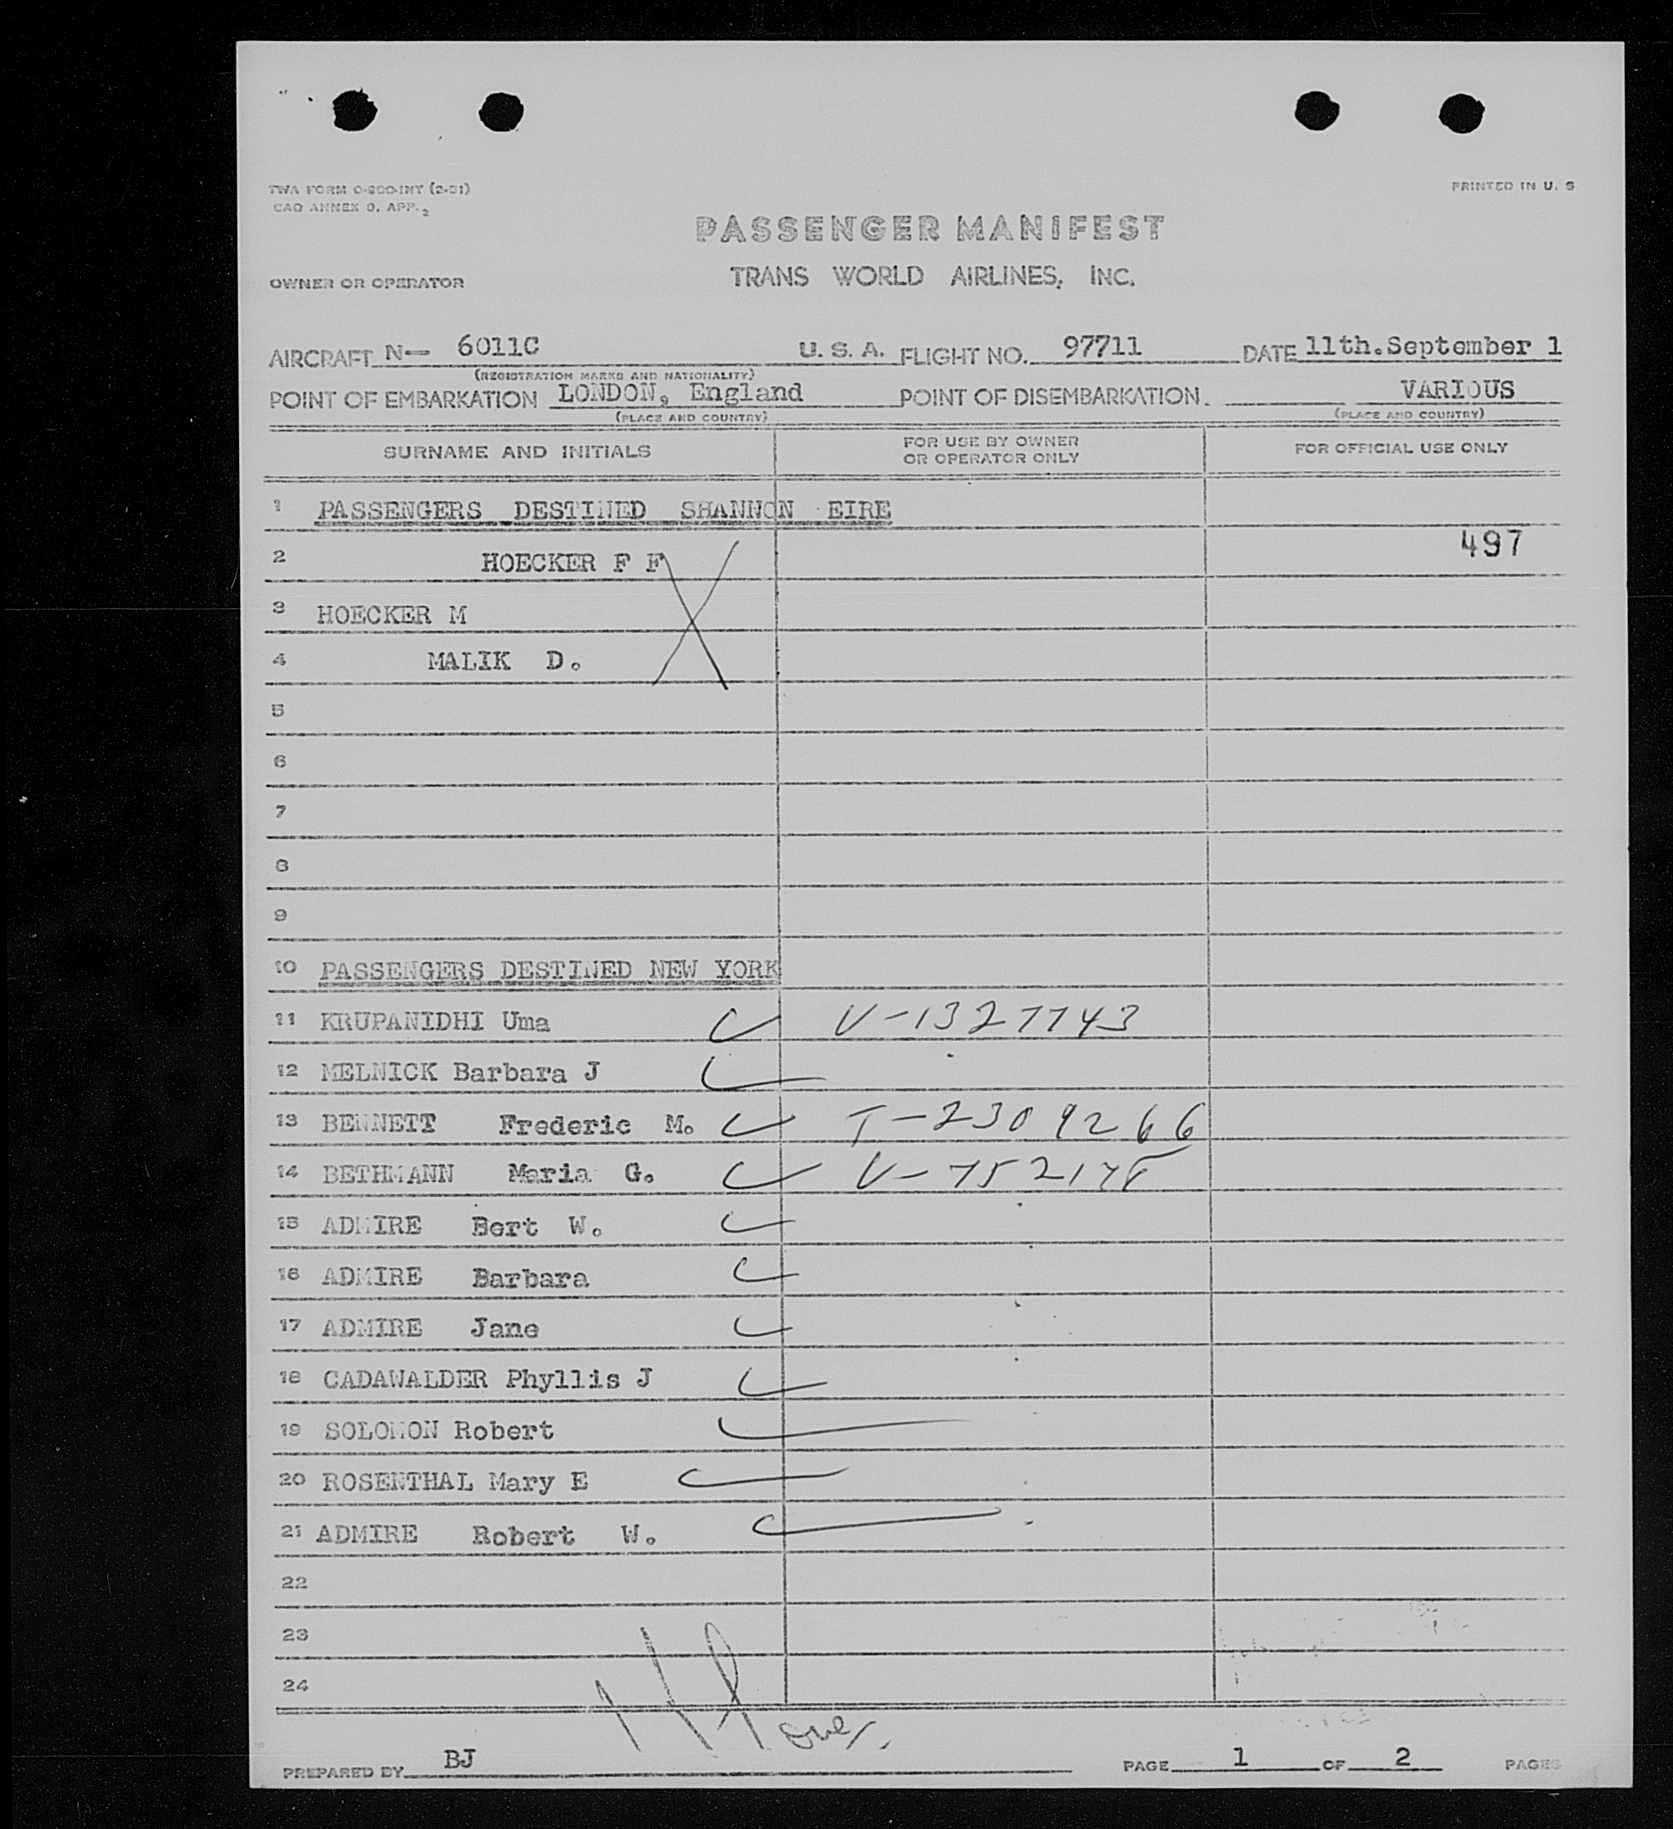 TWA FORM O-200-INT (2-51)
CAO ANNEX 9, APP. 2
PRINTED IN U. S
PASSENGER MANIFEST
OWNER OR OPERATOR TRANS WORLD AIRLINES, INC.
AIRCRAFT N— 6011C U. S. A. FLIGHT NO. 97711 DATE 11th.September 1
(REGISTRATION MARKS AND NATIONALITY)
POINT OF EMBARKATION LONDON, England POINT OF DISEMBARKATION. VARIOUS
(PLACE AND COUNTRY) (PLACE AND COUNTRY)
SURNAME AND INITIALS FOR USE BY OWNER OR OPERATOR ONLY FOR OFFICIAL USE ONLY
1 PASSENGERS DESTINED SHANNON EIRE
2 HOECKER F F 497
3 HOECKER M
4 MALIK D.
5
6
7
8
9
10 PASSENGERS DESTINED NEW YORK
11 KRUPANIDHI Uma V-1327743
12 MELNICK Barbara J
13 BENNETT Frederic M. T-2309266
14 BETHMANN Maria G.
15 ADMIRE Bert W.
16 ADMIRE Barbara
17 ADMIRE Jane
18 CADAWALDER Phyllis J
19 SOLOMON Robert
20 ROSENTHAL Mary E
21 ADMIRE Robert W.
22
23
24
PREPARED BY BJ PAGE 1 OF 2 PAGES